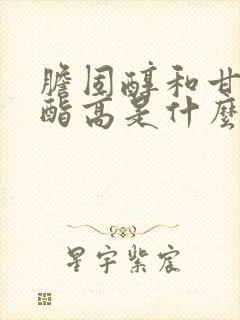 膽固醇和甘
酯高是什麼
星宇紫宸